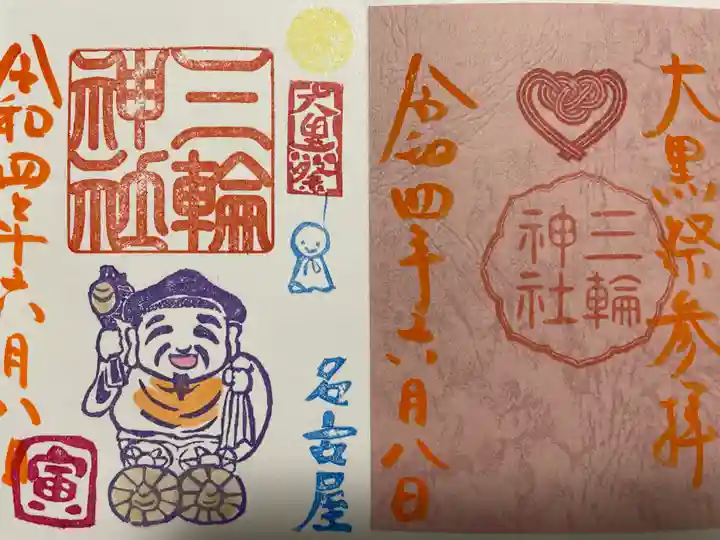 大黒祭参拝
三輪
神社
令和四年六月八日
大黒祭
名古屋
三輪
神社
令和四年六月八日
寅